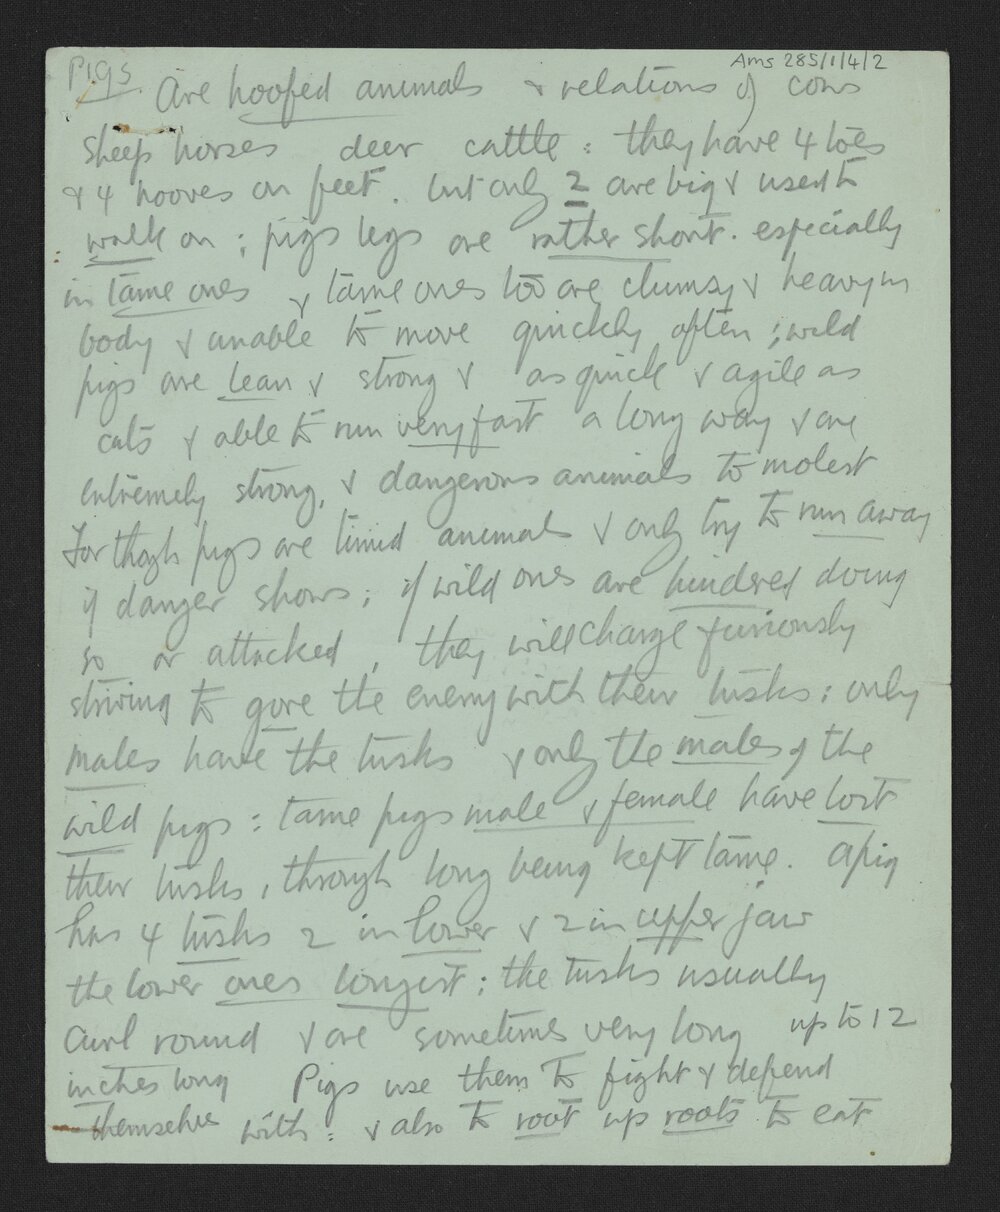 Pigs
Ams 285/1/4/2
Are hoofed animals & relations of cows
sheep horses deer cattle : they have 4 toes
& 4 hooves on feet. but only 2 are big & used to
walk on ; pigs legs are rather short. especially
in tame ones & tame ones too are clumsy & heavy in
body & unable to move quickly often ; wild
pigs are lean & strong & as quick & agile as
cats & able to run very fast a long way & are
extremely strong, & dangerous animals to molest
For thogh pigs are timid animals & only try to run away
if danger shows ; if wild ones are hindered doing
so or attacked , they will charge furiously
striving to gore the enemy with their tusks ; only
males have the tusks & only the males of the
wild pigs : tame pigs male & female have lost
their tusks , through long being kept tame. A pig
has 4 tusks 2 in lower & 2 in upper jaw
the lower ones longest ; the tusks usually
curl round & are sometimes very long up to 12
inches long Pigs use them to fight & defend
themselves with : & also to root up roots to eat